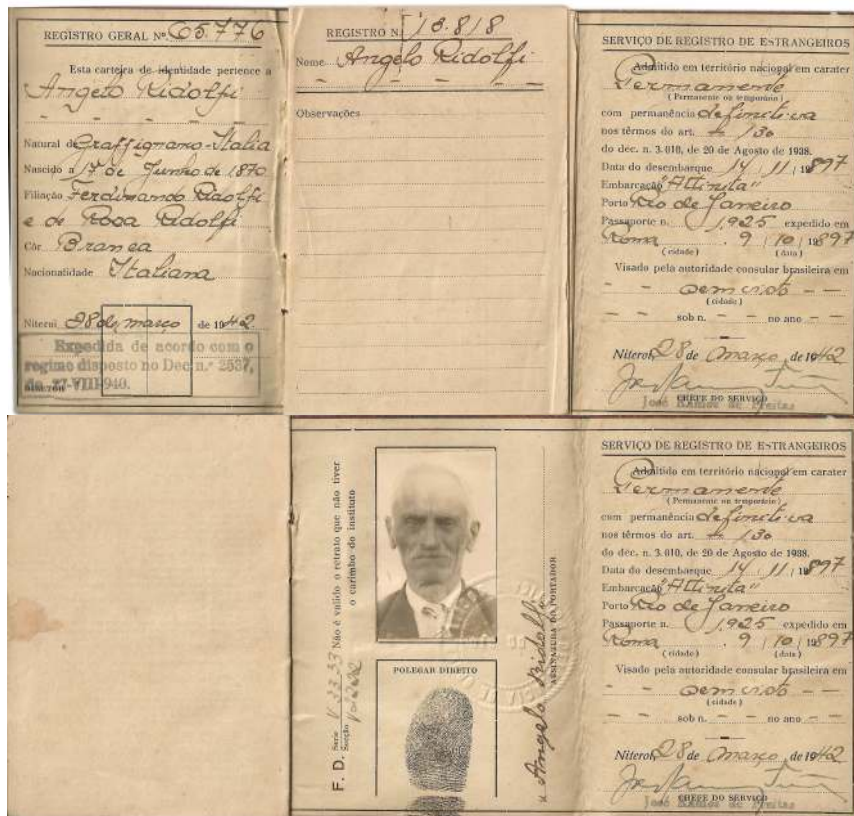 REGISTRO GERAL Nº 65.776
Esta carteira de identidade pertence a
Angelo Ridolfi
Natural de Graffignano-Italia
Nascido a 17 de Junho de 1870
Filiação Ferdinando Ridolfi
e de Rosa Ridolfi
Côr Branca
Nacionalidade Italiana
Niteroi 28 de março de 1942
Expedida de acordo com o
regime disposto no Dec. n.º 2537,
de 27-VIII-940.
DIRETOR
REGISTRO N. 13.818
Nome Angelo Ridolfi
Observações
SERVIÇO DE REGISTRO DE ESTRANGEIROS
Admitido em território nacional em carater
Permanente
(Permanente ou temporário)
com permanência definitiva
nos têrmos do art. 130
do dec. n. 3.010, de 20 de Agosto de 1938.
Data do desembarque 14 / 11 / 1897
Embarcação "Attinita"
Porto Rio de Janeiro
Passaporte n. 1.925 expedido em
Roma 9 / 10 / 1897
(cidade) (data)
Visado pela autoridade consular brasileira em
sem visto
(cidade)
sob n. no ano
Niteroi, 28 de Março de 1942
CHEFE DO SERVIÇO
José Ramos de Freitas
F. D. Serie V. 3333
Secção V-2222
Não é valido o retrato que não tiver
o carimbo do instituto
POLEGAR DIREITO
Angelo Ridolfi
ASSINATURA DO PORTADOR
SERVIÇO DE REGISTRO DE ESTRANGEIROS
Admitido em território nacional em carater
Permanente
(Permanente ou temporário)
com permanência definitiva
nos têrmos do art. 130
do dec. n. 3.010, de 20 de Agosto de 1938.
Data do desembarque 14 / 11 / 1897
Embarcação "Attinita"
Porto Rio de Janeiro
Passaporte n. 1.925 expedido em
Roma 9 / 10 / 1897
(cidade) (data)
Visado pela autoridade consular brasileira em
sem visto
(cidade)
sob n. no ano
Niteroi, 28 de Março de 1942
CHEFE DO SERVIÇO
José Ramos de Freitas